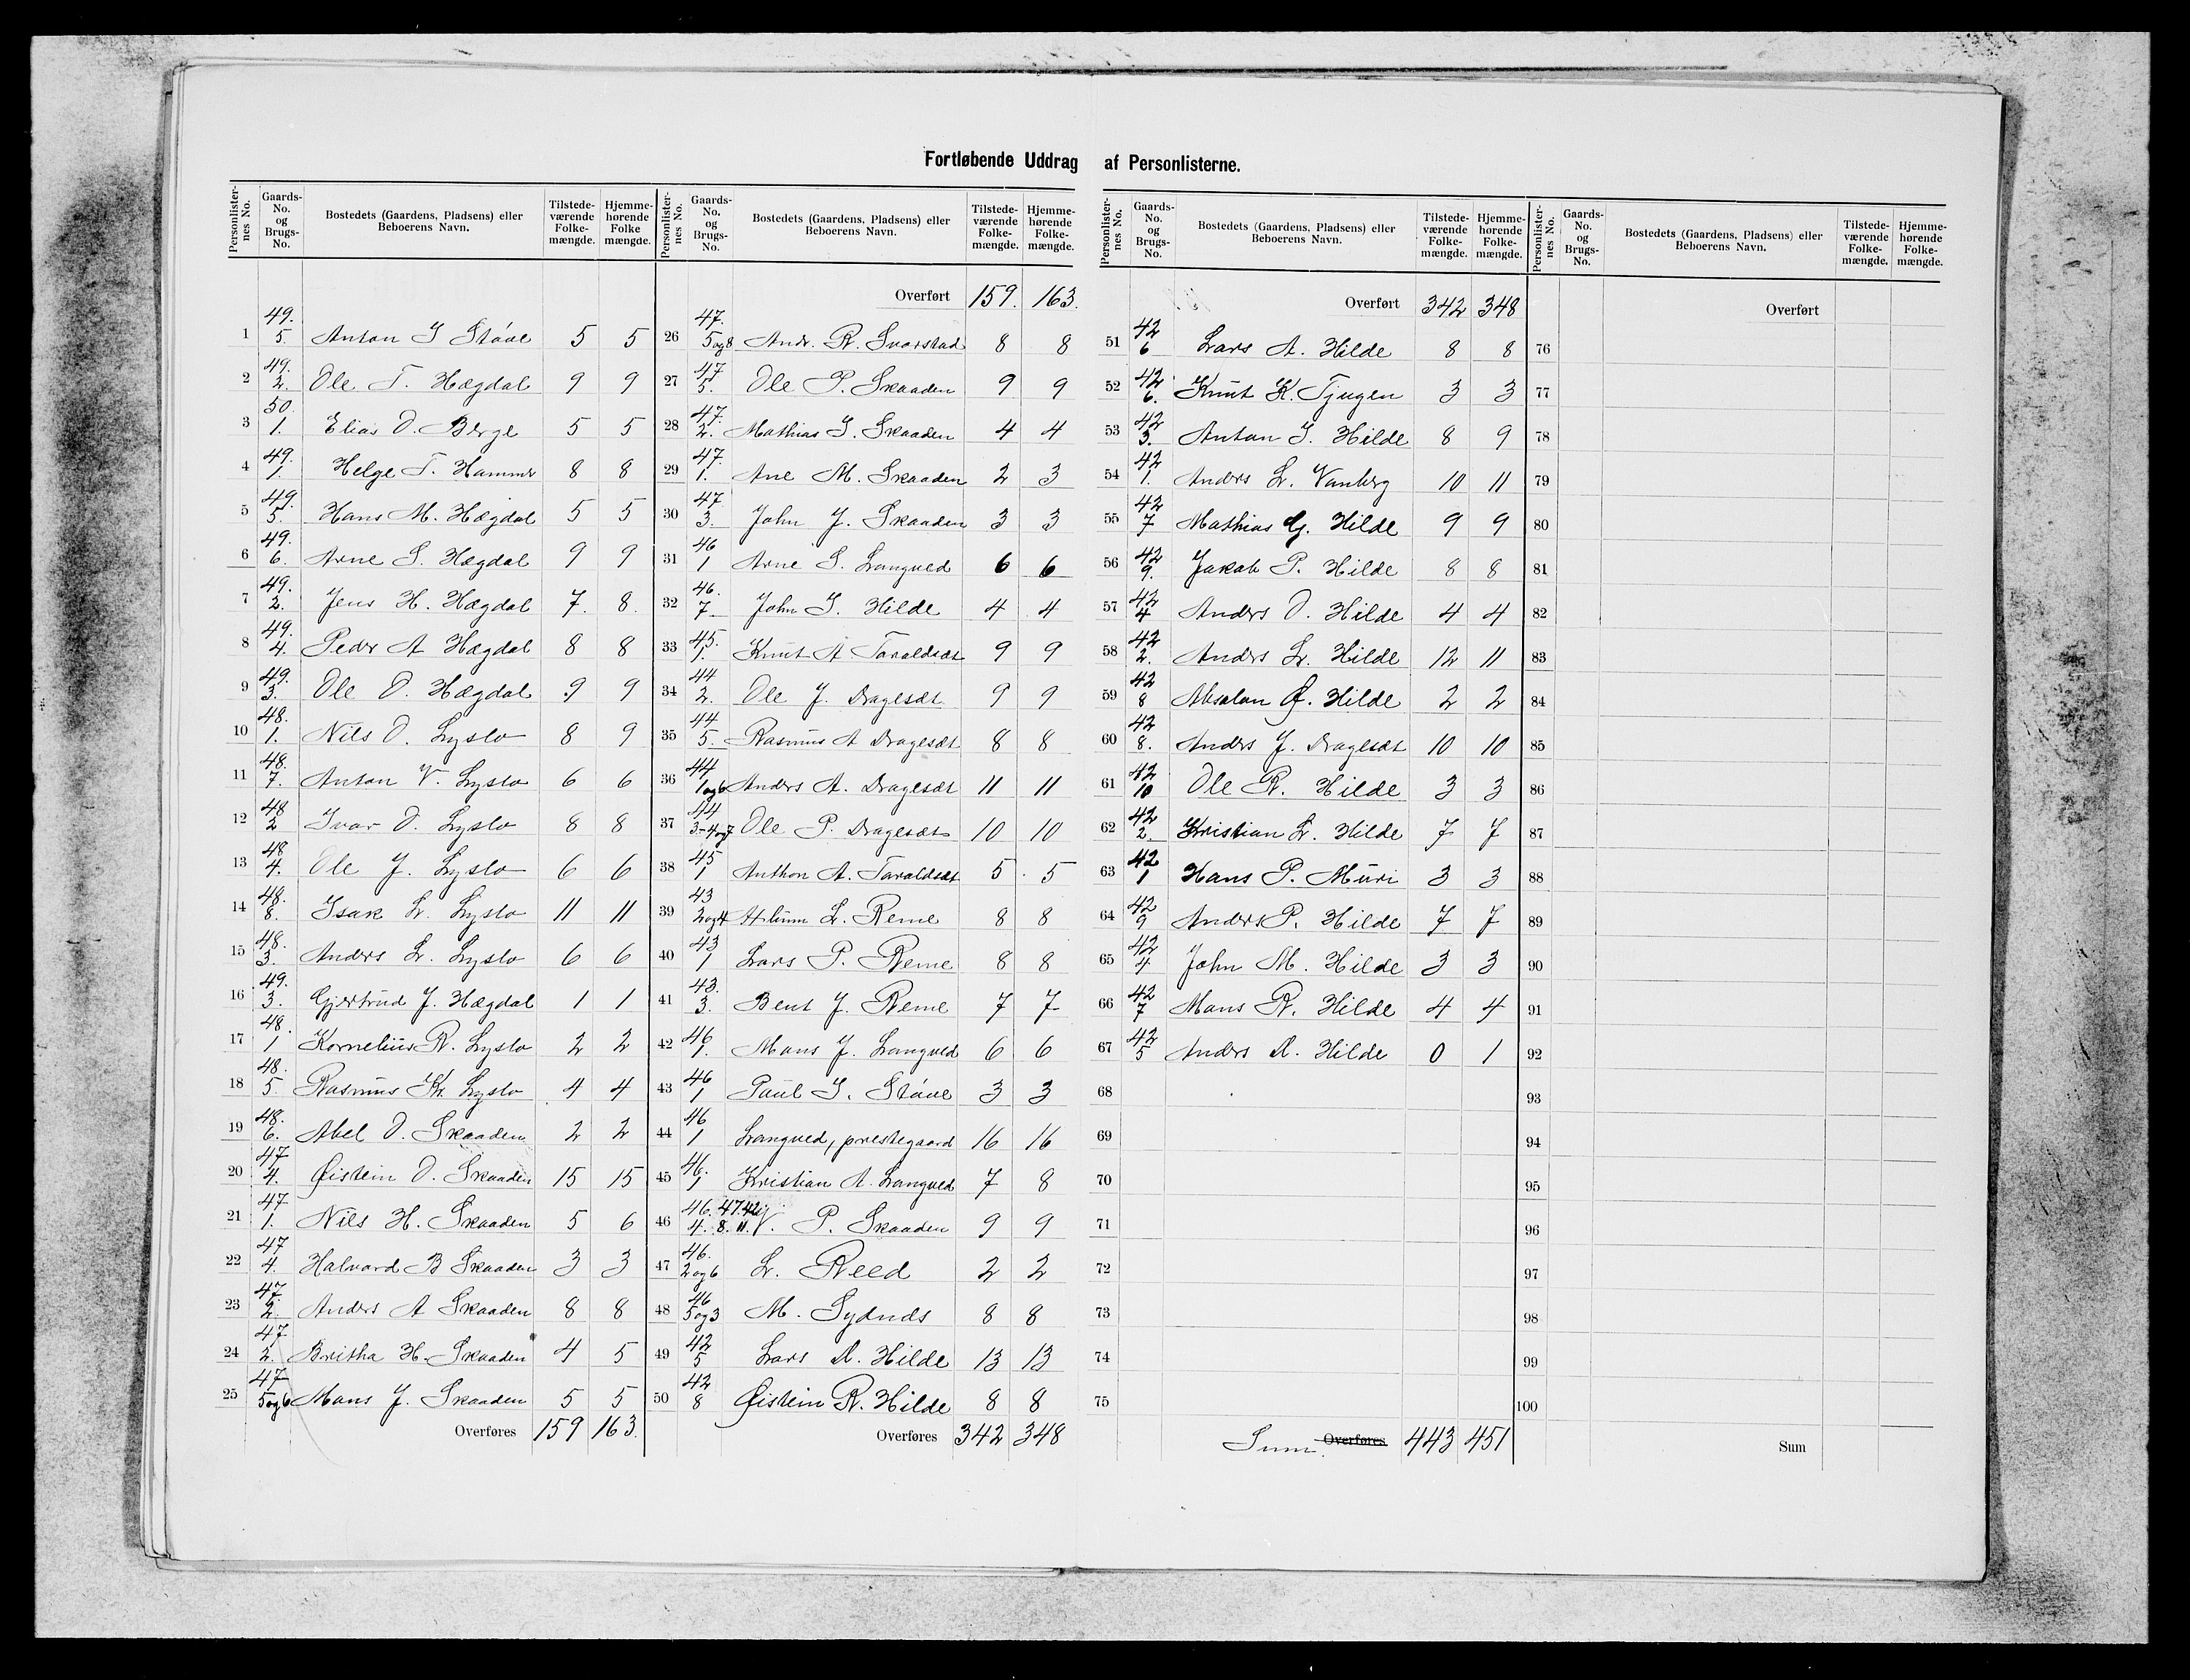 Fortløbende Uddrag af Personlisterne.
Personlisternes No. Gaards-No. og Brugs-No. Bostedets (Gaardens, Pladsens) eller Beboerens Navn. Tilstedeværende Folkemængde. Hjemmehørende Folkemængde.
1 49. 5. Anton I Støve 5 5
2 49. 2. Ole T. Hægdal 9 9
3 50. 1. Elias O. Berge 5 5
4 49. 1. Helge T. Hammer 8 8
5 49. 5. Hans M. Hægdal 5 5
6 49. 6. Arne S. Hægdal 9 9
7 49. 2. Jens H. Hægdal 7. 8.
8 49. 4. Peder A Hægdal 8 8
9 49. 3. Ole O. Hægdal 9 9
10 48. 1. Nils O. Lyslo 8 9
11 48. 7. Anton V. Lyslo 6 6
12 48 2 Ivar O. Lyslo 8 8
13 48 4. Ole J. Lyslo 6 6
14 48. 8. Isak L. Lyslo 11 11
15 48. 3. Anders L. Lyslo 6 6
16 49. 3. Gjertrud J. Hægdal 1 1
17 48. 1 Kornelius R. Lyslo 2 2
18 48. 5. Rasmus Kr. Lyslo 4 4
19 48. 6. Abel O. Skaaden 2 2
20 47 4. Øistein O. Skaaden 15 15
21 47 1. Nils H. Skaaden 5 6
22 47 4. Halvard B Skaaden 3 3
23 47. 2. Anders A Skaaden 8 8
24 47 2. Britha H. Skaaden 4 5
25 47 5og6 Mons J. Skaaden 5 5
Overføres 159 163.
Personlisternes No. Gaards-No. og Brugs-No. Bostedets (Gaardens, Pladsens) eller Beboerens Navn. Tilstedeværende Folkemængde. Hjemmehørende Folkemængde.
Overført 159. 163.
26 47. 5og8 Andr. R. Svorstad 8 8
27 47 5. Ole P. Skaaden 9 9
28 47. 2. Mathias I. Skaaden 4 4
29 47. 1. Ane M. Skaaden 2 3
30 47 3. John J. Skaaden 3 3
31 46 1 Arne S. Langved 6 6
32 46. 7 John I. Hilde 4 4
33 45. 1. Knut A Taraldsæt 9 9
34 44 2. Ole J. Dragesæt 9 9
35 44 5. Rasmus A Dragesæt 8 8
36 44 1og6 Anders A. Dragesæt 11 11
37 44 3-4og7 Ole P. Dragesæt 10 10
38 45 1 Anthon A. Taraldsæt 5 5
39 43 2og4 L. Reme 8 8
40 43 1 Lars P. Reme 8 8
41 43. 3. Bent J. Reme 7 7
42 46 1. Mons J. Langved 6 6
43 46 1 Paul I. Støve 3 3
44 46 1 Langved, prestegaard 16 16
45 46. 1 Kristian A. Langved 7 8
46 46. 47. 42 4. 8. 11. V. P. Skaaden 9 9
47 46. 2og6 L. Reed 2 2
48 46 5og3 M. Sydnes 8 8
49 42 5 Lars A. Hilde 13 13
50 42 8 Øistein R. Hilde 8 8
Overføres 342 348
Personlisternes No. Gaards-No. og Brugs-No. Bostedets (Gaardens, Pladsens) eller Beboerens Navn. Tilstedeværende Folkemængde. Hjemmehørende Folkemængde.
Overført 342 348
51 42 6 Lars A. Hilde 8 8
52 42 6. Knut K. Tjugen 3 3
53 42 3. Anton I. Hilde 8 9
54 42 1. Anders L. Vanberg 10 11
55 42 7 Mathias G. Hilde 9 9
56 42 9. Jakob P. Hilde 8 8
57 42 4 Anders O. Hilde 4 4
58 42 2. Anders L. Hilde 12 11
59 42 8 Absalon Ø. Hilde 2 2
60 42 8. Anders J. Dragesæt 10 10
61 42 10 Ole R. Hilde 3 3
62 42 2. Kristian L. Hilde 7 7
63 42 1 Hans P. Muri 3 3
64 42 9 Anders P. Hilde 7 7
65 42 4 John M. Hilde 3 3
66 42 7 Mons R. Hilde 4 4
67 42 5 Anders A. Hilde 0 1
68
69
70
71
72
73
74
75
Sum. Overføres 443 451
Personlisternes No. Gaards-No. og Brugs-No. Bostedets (Gaardens, Pladsens) eller Beboerens Navn. Tilstedeværende Folkemængde. Hjemmehørende Folkemængde.
Overført
76
77
78
79
80
81
82
83
84
85
86
87
88
89
90
91
92
93
94
95
96
97
98
99
100
Sum